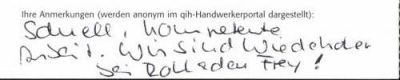 Ihre Anmerkungen (werden anonym im qih-Handwerkerportal dargestellt):
Schnell, kompetente
Arbeit. Wir sind wieder
bei Rolladen Frey!